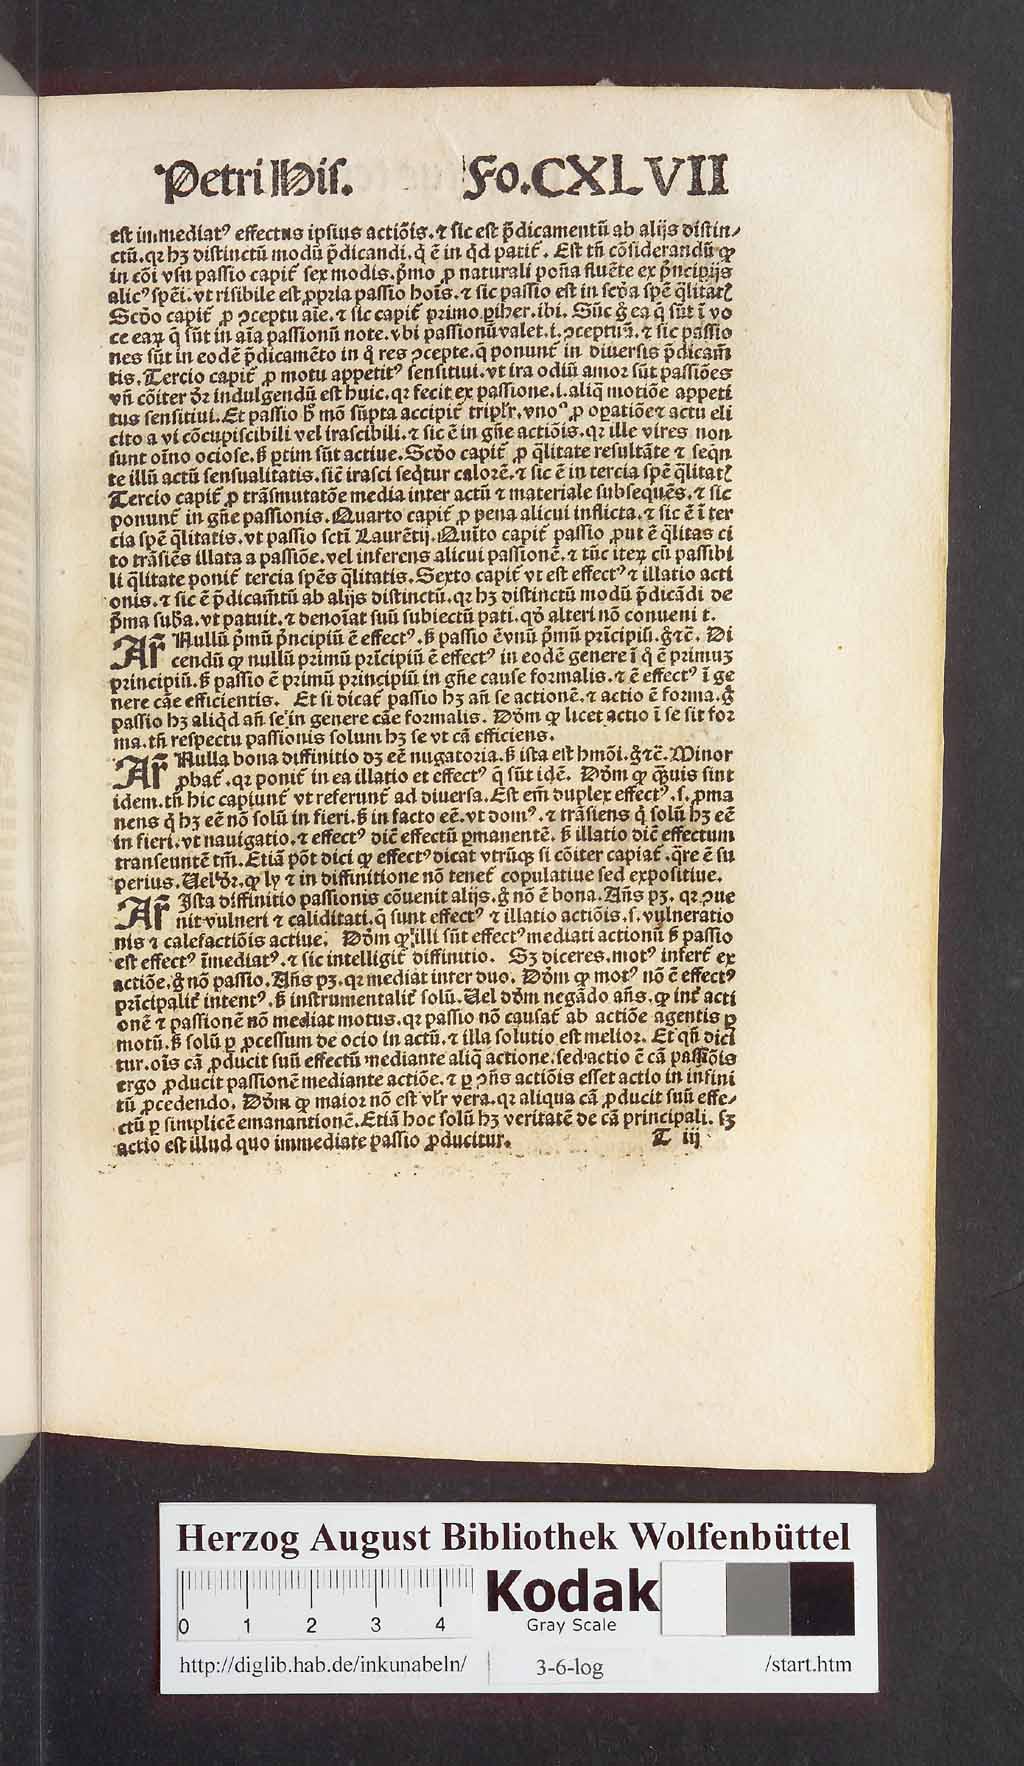 Petri His. Fo.CXLVII
est immediatꝰ effectus ipsius actiõis.⁊ sic est p̃dicamentũ ab alijs distin⸗
ctũ.qꝛ hꝫ distinctũ modũ p̃dicandi.q̇ ẽ in qḋ patit᷑. Est tñ cõsiderandũ ꝙ
in cõi vsu passio capit᷑ sex modis.pⁱmo ꝓ naturali poña fluẽte ex pⁱncipijs
alicꝰ spẽi.vt risibile est ꝓpria passio hoĩs.⁊ sic passio est in scḋa spẽ q̃litat᷑
Scḋo capit᷑ ꝓ ꝯceptu aĩe.⁊ sic capit᷑ primo ꝑiher.ibi. Sũt g̊ ea q̃ sũt ĩ vo
ce eaꝝ q̃ sũt in aĩa passionũ note.vbi passionũ valet.i.ꝯceptuũ.⁊ sic passio
nes sũt in eodẽ p̃dicamẽto in q̊ res ꝯcepte.q̃ ponunt᷑ in diuersis p̃dicam̃
tis. Tercio capit᷑ ꝓ motu appetitꝰ sensitiui.vt ira odiũ amor sũt passiões
vñ cõiter d̃r indulgendũ est huic.qꝛ fecit ex passione.i.aliq̃ motiõe appeti
tus sensitiui.Et passio h̊ mõ sũpta accipit᷑ triplr̃.vno° ꝓ oꝑatiõe ⁊ actu eli
cito a vi cõcupiscibili vel irascibili.⁊ sic ẽ in gñe actiõis.qꝛ ille vires non
sunt oĩno ociose.ß ꝑtim sũt actiue.Scḋo capit᷑ ꝓ q̃litate resultãte ⁊ seqn̄
te illũ actũ sensualitatis.sic̃ irasci seq̃tur calorẽ.⁊ sic ẽ in tercia spẽ q̃litat᷑
Tercio capit᷑ ꝓ trãsmutatõe media inter actũ ⁊ materiale subsequẽs.⁊ sic
ponunt᷑ in gñe passionis.Quarto capit᷑ ꝓ pena alicui inflicta.⁊ sic ẽ ĩ ter
cia spẽ q̃litatis.vt passio scti̇ Laurẽtij.Quĩto capit᷑ passio ꝓut ẽ q̃litas ci
to trãsiẽs illata a passiõe.vel inferens alicui passionẽ.⁊ tũc iteꝝ cũ passibi
li q̃litate ponit᷑ tercia spẽs q̃litatis.Sexto capit᷑ vt est effectꝰ ⁊ illatio acti
onis.⁊ sic ẽ p̃dicam̃tũ ab alijs distinctũ.qꝛ hꝫ distinctũ modũ p̃dicãdi de
pⁱma suḃa.vt patuit.⁊ denoĩat suũ subiectũ pati.qḋ alteri nõ conueni t.
Ar̃ Nullũ pⁱmũ pⁱncipiũ ẽ effectꝰ.ß passio ẽ vnũ pⁱmũ prĩcipiũ.g̊ ⁊c̃. Di
cendũ ꝙ nullũ primũ prĩcipiũ ẽ effectꝰ in eodẽ genere ĩ q̊ ẽ primuꝫ
principiũ.ß passio ẽ primũ principiũ in gñe cause formalis.⁊ ẽ effectꝰ ĩ ge
nere cãe efficientis. Et si dicat᷑ passio hꝫ añ se actionẽ.⁊ actio ẽ forma.g̊
passio hꝫ aliqḋ añ se in genere cãe formalis. Dḋm ꝙ licet actio ĩ se sit for
ma.tñ respectu passionis solum hꝫ se vt cã efficiens.
Ar̃ Nulla bona diffinitio dꝫ eẽ nugatoria.ß ista est hmõi.g̊ ⁊c̃.Minor
ꝓbat᷑.qꝛ ponit᷑ in ea illatio et effectꝰ q̃ sũt idẽ. Dḋm ꝙ q̃uis sint
idem.tñ hic capiunt᷑ vt referunt᷑ ad diuersa.Est em̃ duplex effectꝰ.s.ꝑma
nens q̇ hꝫ eẽ nõ solũ in fieri.ß in facto eẽ.vt domꝰ.⁊ trãsiens q̇ solũ hꝫ eẽ
in fieri.vt nauigatio.⁊ effectꝰ dic̃ effectũ ꝑmanentẽ. ß illatio dic̃ effectum
transeuntẽ tm̃.Etiã põt dici ꝙ effectꝰ dicat vtrũqꝫ si cõiter capiat᷑.q̃re ẽ su
perius.Uel d̃r.ꝙ ly ⁊ in diffinitione nõ tenet᷑ copulatiue sed expositiue.
Ar̃ Ista diffinitio passionis cõuenit alijs.g̊ nõ ẽ bona.Añs pꝫ. qꝛ ꝯue
nit vulneri ⁊ caliditati.q̃ sunt effectꝰ ⁊ illatio actiõis.s.vulneratio
nis ⁊ calefactiõis actiue. Dḋm ꝙ illi sũt effectꝰ mediati actionũ ß passio
est effectꝰ ĩmediatꝰ.⁊ sic intelligit᷑ diffinitio. Sꝫ diceres.motꝰ infert᷑ ex
actiõe.g̊ nõ passio.Añs pꝫ.qꝛ mediat inter duo. Dḋm ꝙ motꝰ nõ ẽ effectꝰ
prĩcipalit᷑ intentꝰ.ß instrumentalit᷑ solũ.Uel dḋm negãdo añs.ꝙ int᷑ acti
onẽ ⁊ passionẽ nõ mediat motus.qꝛ passio nõ causat᷑ ab actiõe agentis ꝑ
motũ.ß solũ ꝑ ꝓcessum de ocio in actũ.⁊ illa solutio est melior. Et qñ dici
tur.oĩs cã ꝓducit suũ effectũ mediante aliq̃ actione.sed actio ẽ cã passiõis
ergo ꝓducit passionẽ mediante actiõe.⁊ ꝑ ꝯñs actiõis esset actio in infini
tũ ꝓcedendo. Dḋm ꝙ maior nõ est vlr̃ vera.qꝛ aliqua cã ꝓducit suũ effe⸗
ctũ ꝑ simplicẽ emanantionẽ.Etiã hoc solũ hꝫ veritatẽ de cã principali.sꝫ
actio est illud quo immediate passio ꝓducitur. T iij
Herzog August Bibliothek Wolfenbüttel
0 1 2 3 4
Kodak
Gray Scale
http://diglib.hab.de/inkunabeln/ 3-6-log /start.htm